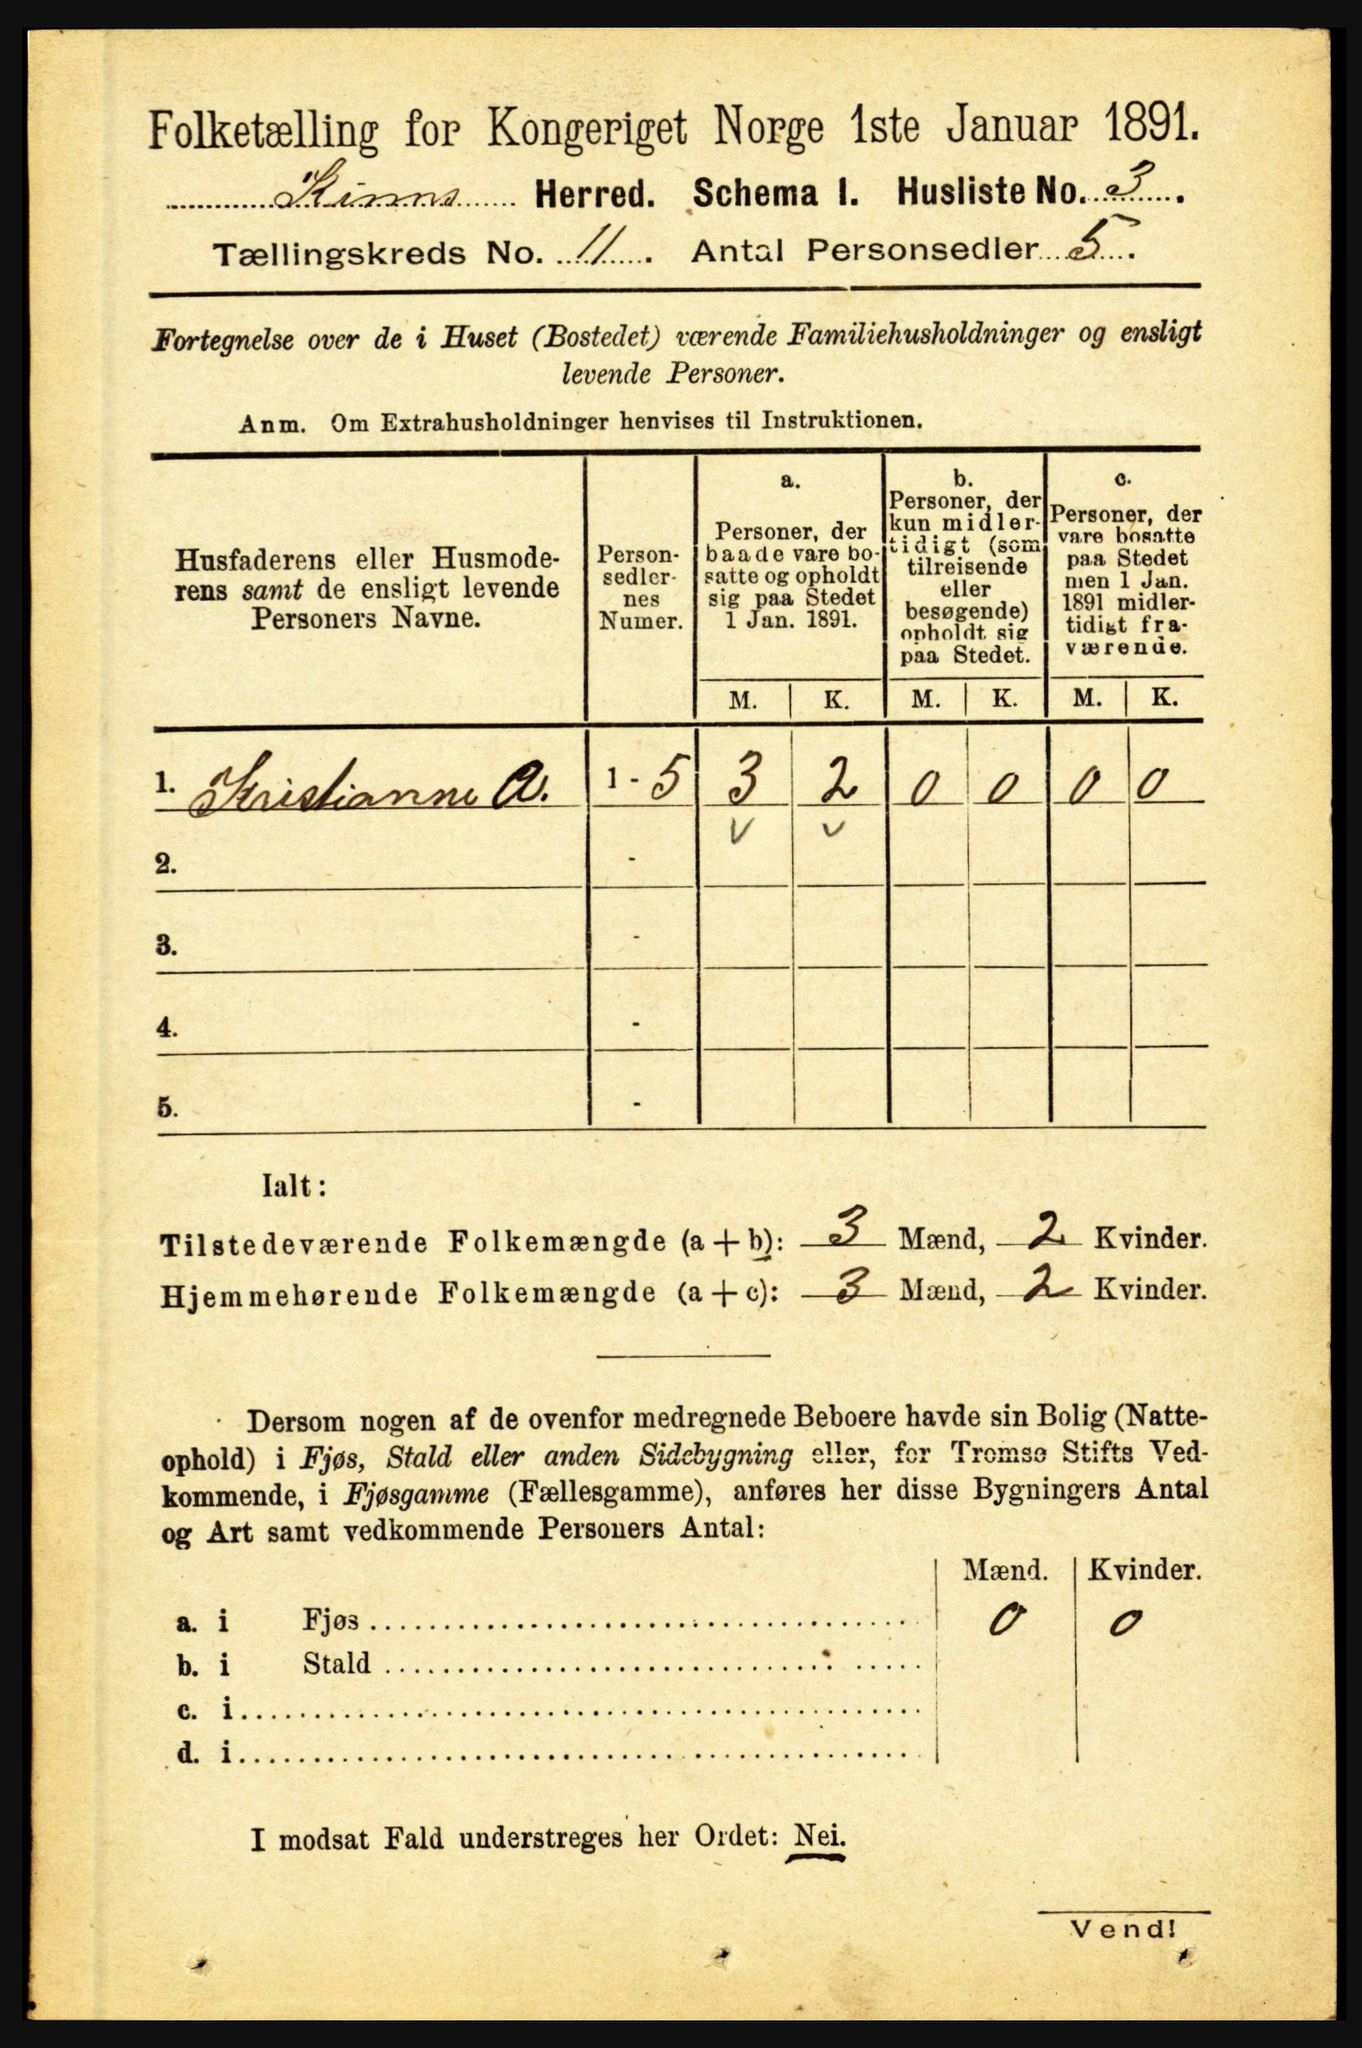 Folketælling for Kongeriget Norge 1ste Januar 1891.
Kinns Herred. Schema I. Husliste No. 3.
Tællingskreds No. 11. Antal Personsedler 5.
Fortegnelse over de i Huset (Bostedet) værende Familiehusholdninger og ensligt
levende Personer.
Anm. Om Extrahusholdninger henvises til Instruktionen.
Husfaderens eller Husmode-
rens samt de ensligt levende
Personers Navne.
Person-
sedler-
nes
Numer.
a.
Personer, der
baade vare bo-
satte og opholdt
sig paa Stedet
1 Jan. 1891.
b.
Personer, der
kun midler-
tidigt (som
tilreisende
eller
besøgende)
opholdt sig
paa Stedet.
c.
Personer, der
vare bosatte
paa Stedet
men 1 Jan.
1891 midler-
tidigt fra-
værende.
M. K. M. K. M. K.
1. Kristianne A. 1 - 5 3 2 0 0 0 0
2. -
3. -
4. -
5. -
Ialt:
Tilstedeværende Folkemængde (a + b): 3 Mænd, 2 Kvinder.
Hjemmehørende Folkemængde (a + c): 3 Mænd, 2 Kvinder.
Dersom nogen af de ovenfor medregnede Beboere havde sin Bolig (Natte-
ophold) i Fjøs, Stald eller anden Sidebygning eller, for Tromsø Stifts Ved-
kommende, i Fjøsgamme (Fællesgamme), anføres her disse Bygningers Antal
og Art samt vedkommende Personers Antal:
Mænd. Kvinder.
a. i Fjøs 0 0
b. i Stald
c. i
d. i
I modsat Fald understreges her Ordet: Nei.
Vend!